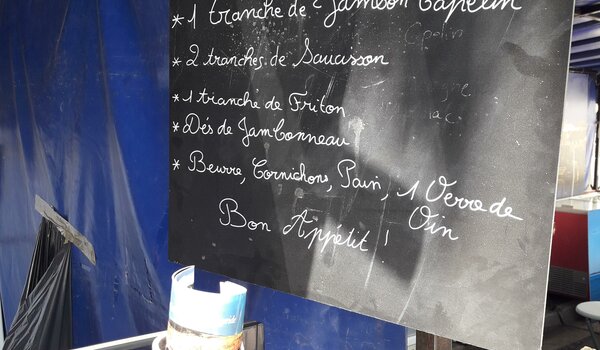 * 1 tranche de Jambon
* 2 tranches de Saucisson
* 1 tranche de Friton
* Dés de Jambonneau
* Beurre, Cornichons, Pain, 1 Verre de
Vin
Bon Appétit !